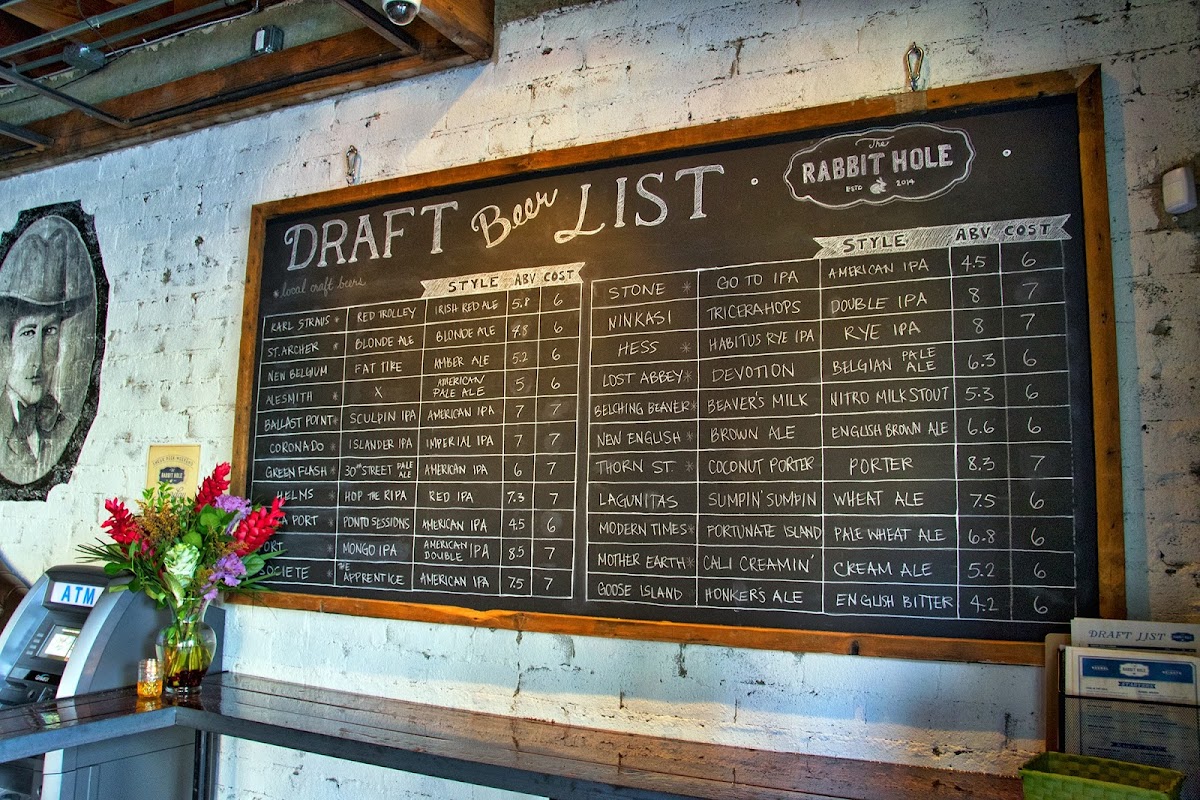 DRAFT Beer LIST
The
RABBIT HOLE
ESTD 2014
* local craft beers
STYLE ABV COST
KARL STRAUS * RED TROLLEY IRISH RED ALE 5.8 6
ST. ARCHER * BLONDE ALE BLONDE ALE 4.8 6
NEW BELGIUM FAT TIKE AMBER ALE 5.2 6
ALESMITH * X AMERICAN PALE ALE 5 6
BALLAST POINT * SCULPIN IPA AMERICAN IPA 7 7
CORONADO * ISLANDER IPA IMPERIAL IPA 7 7
GREEN FLASH * 30TH STREET PALE ALE AMERICAN IPA 6 7
HELMS * HOP THE RIPA RED IPA 7.3 7
PORT * PONTO SESSIONS AMERICAN IPA 4.5 6
PORT * MONGO IPA AMERICAN DOUBLE IPA 8.5 7
OCIETE * THE APPRENTICE AMERICAN IPA 7.5 7
STYLE ABV COST
STONE * GO TO IPA AMERICAN IPA 4.5 6
NINKASI TRICERAHOPS DOUBLE IPA 8 7
HESS * HABITUS RYE IPA RYE IPA 8 7
LOST ABBEY * DEVOTION BELGIAN PALE ALE 6.3 6
BELCHING BEAVER * BEAVER'S MILK NITRO MILK STOUT 5.3 6
NEW ENGLISH * BROWN ALE ENGLISH BROWN ALE 6.6 6
THORN ST * COCONUT PORTER PORTER 8.3 7
LAGUNITAS SUMPIN' SUMPIN WHEAT ALE 7.5 6
MODERN TIMES * FORTUNATE ISLAND PALE WHEAT ALE 6.8 6
MOTHER EARTH * CALI CREAMIN' CREAM ALE 5.2 6
GOOSE ISLAND HONKER'S ALE ENGLISH BITTER 4.2 6
ATM
DRAFT LIST